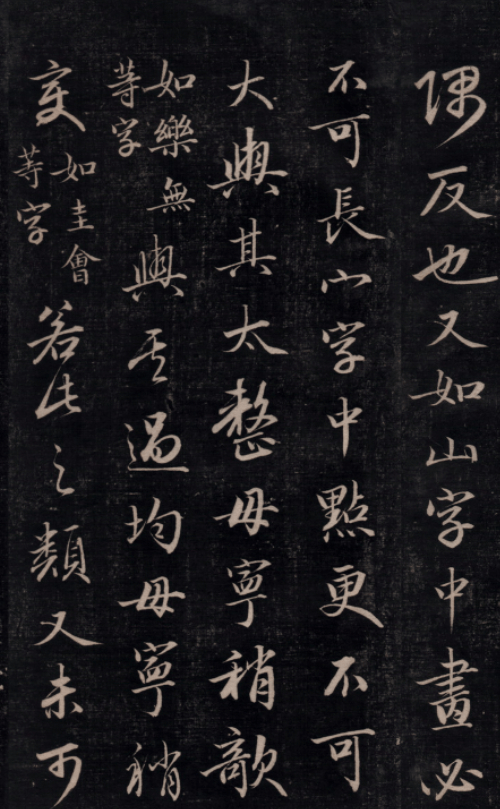 隅反也又如山字中畫必
不可長宀字中點更不可
大與其太整毋寧稍欹
如樂無
等字
與其過均毋寧稍
変
如圭會
等字
若此之類又未可